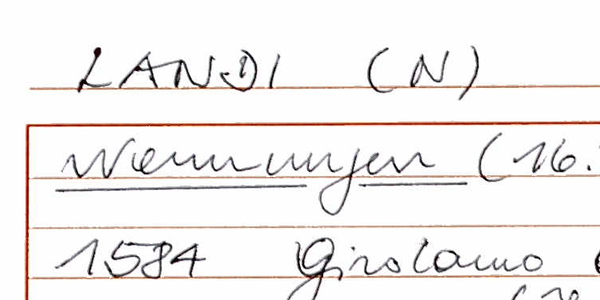 LANDI (N)
Nennungen (16.
1584 Girolamo